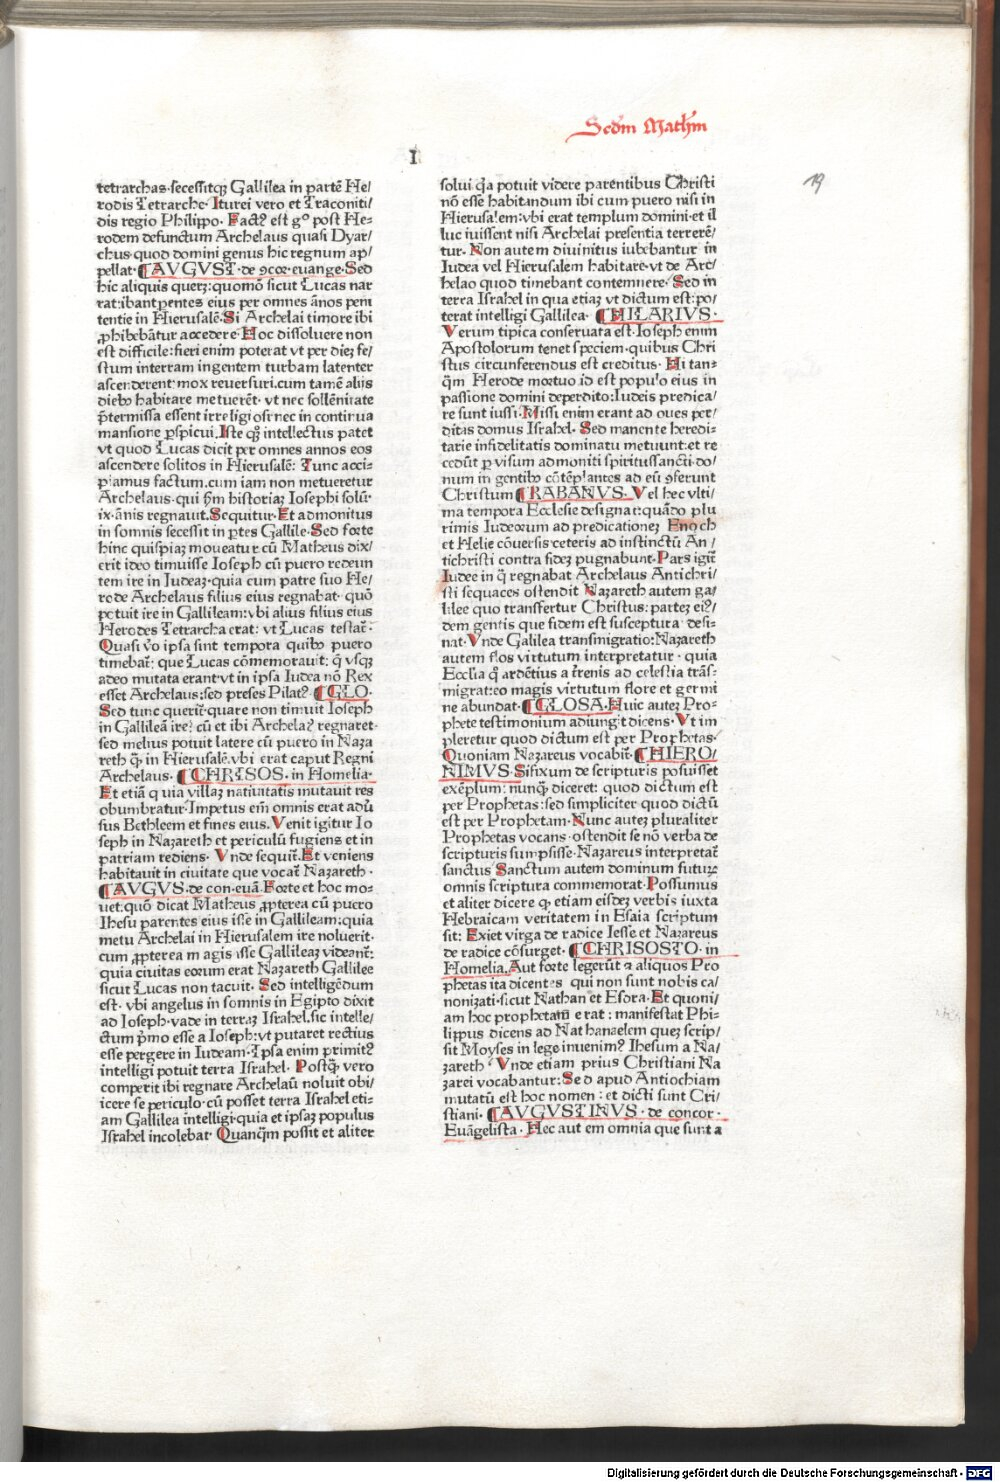 Scdm Mathm
19
I
tetrarchas·secessitqꝫ Gallilea in partē He/
rodis Tetrarche· Iturei vero et Traconiti/
dis regio Philippo. Factꝰ est gͦ post He-
rodem defunctum Archelaus quasi Dyar/
chus·quod domini genus hic regnum ap/
pellat· AVGVST· de ꝯcor· euange· Sed
hic aliquis querꝫ: quomō sicut Lucas nar
rat: ibant pentes eius per omnes ānos peni
tentie in Hierusalē· Si Archelai timore ibi
ꝓhibebātur accedere· Hoc dissoluere non
est difficile: fieri enim poterat vt per dieꝫ fe/
stum interram ingentem turbam latenter
ascenderent: mox reuersuri. cum tamē aliis
diebꝰ habitare metuerēt· vt nec sollēnitate
p̄termissa essent irreligiosi: nec in continua
mansione ꝑspicui. Iste qͦꝫ intellectus patet
vt quod Lucas dicit per omnes annos eos
ascendere solitos in Hierusalē: Tunc acci-
piamus factum. cum iam non metueretur
Archelaus· qui ẖm historiaꝫ Iosephi solū·
ix· ānis regnauit. Sequitur· Et admonitus
in somnis secessit in ꝑtes Gallile· Sed forte
hinc quispiaꝫ moueatur cū Matheus dix/
erit ideo timuisse Ioseph cū puero redeun
tem ire in Iudeaꝫ· quia cum patre suo He/
rode Archelaus filius eius regnabat· quō
potuit ire in Gallileam: vbi alius filius eius
Herodes Tetrarcha erat: vt Lucas testaꞇ̄·
Quasi v̄o ipsa sint tempora quibꝰ puero
timebaꞇ̄: que Lucas cōmemorauit: q̄ vsqꝫ
adeo mutata erant· vt in ipsa Iudea nō Rex
esset Archelaus: sed preses Pilatꝰ· GLO·
Sed tunc queriꞇ̄· quare non timuit Ioseph
in Gallileā ire? cū et ibi Archelaꝰ regnaret·
sed melius potuit latere cū puero in Naza
reth q̄ in Hierusalē· vbi erat caput Regni
Archelaus· CHRISOS· in Homelia·
Et etiā quia villaꝫ natiuitatis mutauit res
obumbratur· Impetus em̄ omnis erat adū
sus Bethleem et fines eius. Venit igitur Io
seph in Nazareth et periculū fugiens et in
patriam rediens· Vnde sequiꞇ̄· Et veniens
habitauit in ciuitate que vocaꞇ̄ Nazareth·
AVGVS· de con· euā· Forte et hoc mo-
uet· quō dicat Matheus ꝓpterea cū puero
Ihesu parentes eius isse in Gallileam: quia
metu Archelai in Hierusalem ire noluerit·
cum ꝓpterea magis isse Gallileaꝫ videanꞇ̄:
quia ciuitas eorum erat Nazareth Gallilee
sicut Lucas non tacuit· Sed intelligēdum
est· vbi angelus in somnis in Egipto dixit
ad Ioseph· vade in terraꝫ Israhel. sic intelle/
ctum p̄mo esse a Ioseph: vt putaret rectius
esse pergere in Iudeam· Ipsa enim primitꝰ
intelligi potuit terra Israhel· Postq̄ vero
comperit ibi regnare Archelaū noluit obi/
icere se periculo· cū posset terra Israhel eti-
am Gallilea intelligi· quia et ipsaꝫ populus
Israhel incolebat· Quanq̄m possit et aliter
solui· q̄a potuit videre parentibus Christi
nō esse habitandum ibi cum puero nisi in
Hierusalem: vbi erat templum domini· et il
luc iuissent nisi Archelai presentia terrerē/
tur· Non autem diuinitus iubebantur in
Iudea vel Hierusalem habitare· vt de Arc/
helao quod timebant contemnere· Sed in
terra Israhel in qua etiaꝫ vt dictum est: po/
terat intelligi Gallilea· HILARIVS·
Verum tipica conseruata est· Ioseph enim
Apostolorum tenet speciem· quibus Chri
stus circunferendus est creditus· Hi tan-
q̄m Herode mortuo id est populo eius in
passione domini deperdito: Iudeis predica/
re sunt iussi· Missi enim erant ad oues per/
ditas domus Israhel· Sed manente heredi-
tarie infidelitatis dominatu metuunt· et re
cedūt p visum admoniti spiritussancti· do/
num in gentibꝰ cōtēplantes ad eū ꝯferunt
Christum RABANVS· Vel hec vlti/
ma tempora Ecclesie designat: quādo plu
rimis Iudeorum ad predicationeꝫ Enoch
et Helie cōuersis· ceteris ad instinctū An/
tichristi contra fideꝫ pugnabunt· Pars igiꞇ̄
Iudee in q̄ regnabat Archelaus Antichri/
sti sequaces ostendit Nazareth autem ga/
lilee quo transfertur Christus: parteꝫ eiꝰ/
dem gentis que fidem est susceptura desi-
nat· Vnde Galilea transmigratio: Nazareth
autem flos virtutum interpretatur· quia
Ecclia qͦ ardētius a ꞇ̄renis ad celestia trās-
migrat: eo magis virtutum flore et germi
ne abundat· GLOSA· Huic auteꝫ Pro-
phete testimonium adiungit dicens· Vt im
pleretur quod dictum est per Prophetas·
Quoniam Nazareus vocabiꞇ̄· HIERO/
NIMVS· Si fixum de scripturis posuisset
exēplum: nunq̄ diceret: quod dictum est
per Prophetas: sed simpliciter quod dictū
est per Prophetam· Nunc auteꝫ pluraliter
Prophetas vocans· ostendit se nō verba de
scripturis sumpsisse· Nazareus interpretaꞇ̄
sanctus Sanctum autem dominum futurꝫ
omnis scriptura commemorat· Possumus
et aliter dicere ꝙ etiam eisdeꝫ verbis iuxta
Hebraicam veritatem in Esaia scriptum
sit: Exiet virga de radice Iesse et Nazareus
de radice cōsurget· CHRISOSTO· in
Homelia. Aut forte legerūt aliquos Pro
phetas ita dicentes qui non sunt nobis ca/
nonizati· sicut Nathan et Esdra· Et quoni/
am hoc prophetatū erat: manifestat Phi-
lippus dicens ad Nathanaelem queꝫ scrip/
sit Moyses in lege inuenimꝰ Ihesum a Na/
zareth· Vnde etiam prius Christiani Na
zarei vocabantur: Sed apud Antiochiam
mutatū est hoc nomen: et dicti sunt Cri/
stiani· AVGVSTINVS· de concor·
Euāgelista· Hec autem omnia que sunt a
Digitalisierung gefördert durch die Deutsche Forschungsgemeinschaft - DFG